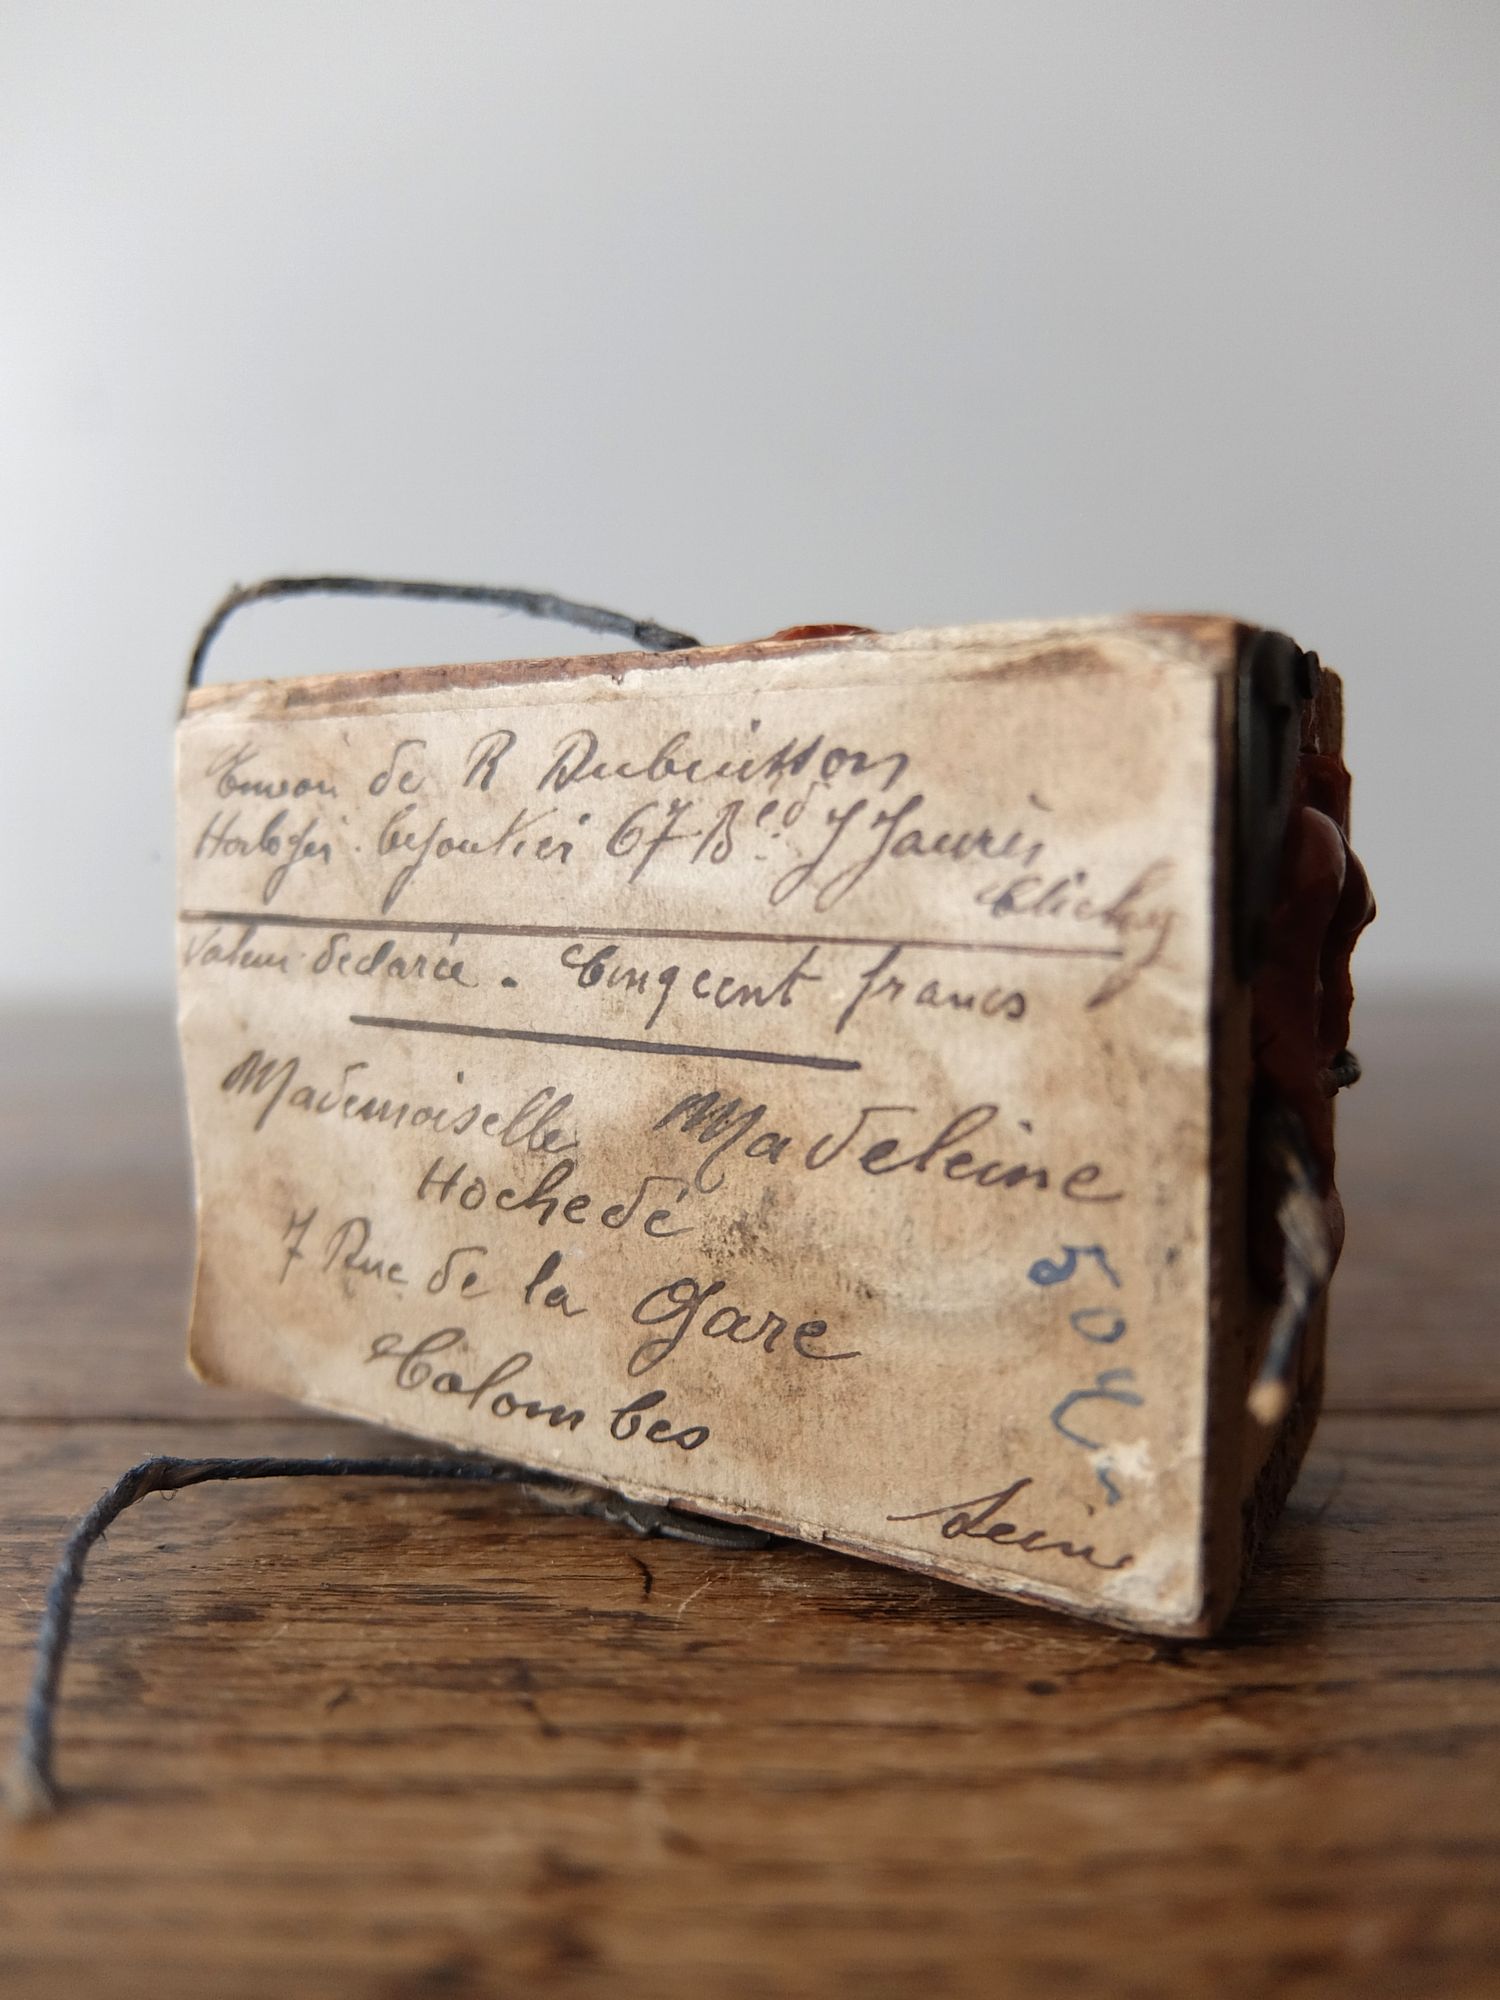 Envoi de R Dubuisson
Horloger. bijoutier 67 Bled J Jaurès
Clichy
Valeur déclarée. Cinq cent francs
Mademoiselle Madeleine
Hochedé
7 Rue de la Gare
Colombes
Seine